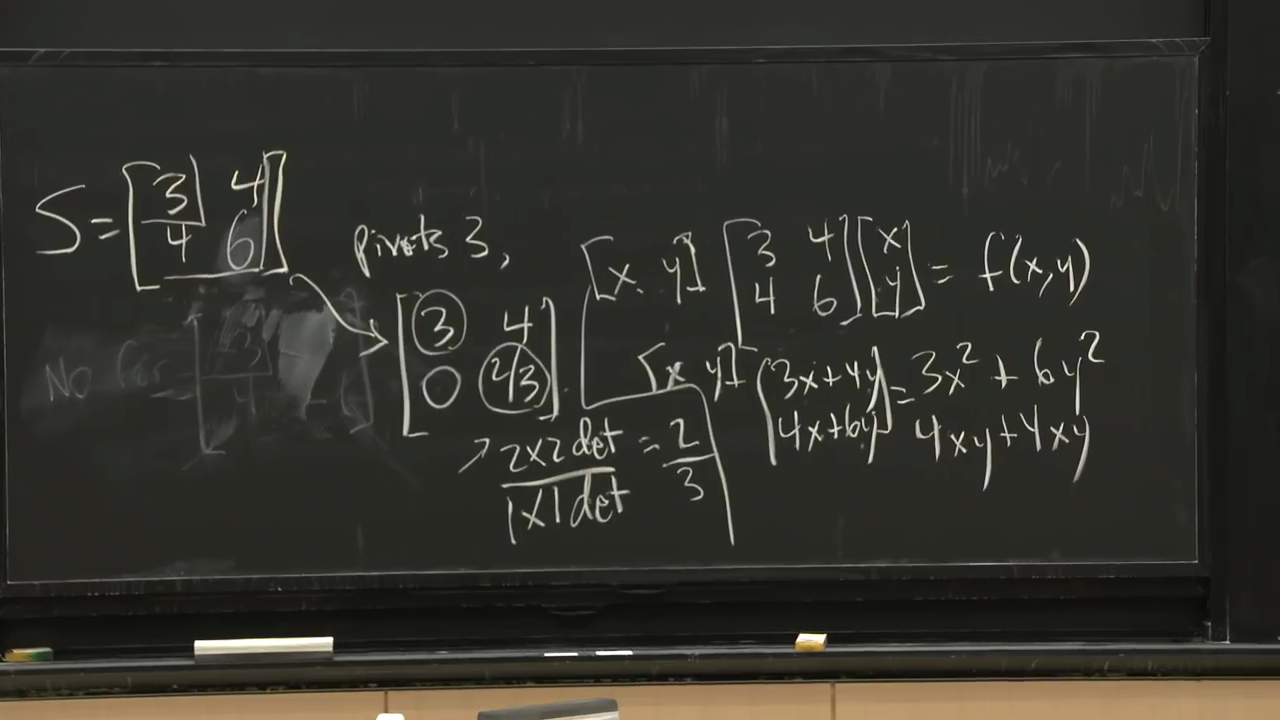 S = [3 4
4 6]
pivots 3,
[3 4
0 2/3]
2x2 det / 1x1 det = 2/3
[x y] [3 4
4 6] [x
y] = f(x,y)
[x y] [3x+4y
4x+6y] = 3x² + 6y²
4xy+4xy
No for